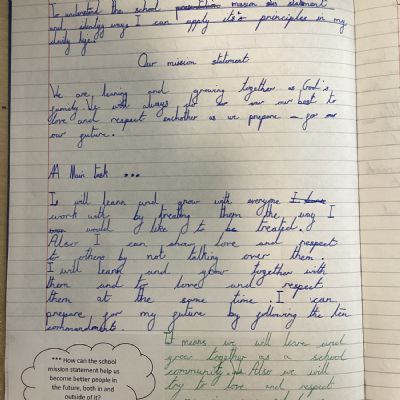 To understand the school mission statement
and identify ways I can apply it's principles in my
daily life.
Our mission statement
We are learning and growing together as God's
family. We will always do our best to
love and respect eachother as we prepare for
our future.
A Main task ...
I will learn and grow with everyone I
work with by treating them the way I
would like to be treated.
Also I can show love and respect
to others by not talking over them.
I will learn and grow together with
them and to love and respect
them at the same time. I can
prepare for my future by following the ten
commandments.
*** How can the school
mission statement help us
become better people in
the future, both in and
outside of it?
It means we will learn and
grow together as a school
community. Also we will
try to love and respect